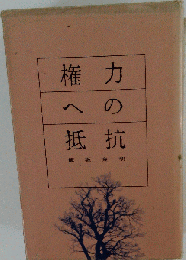 権力
への
抵抗